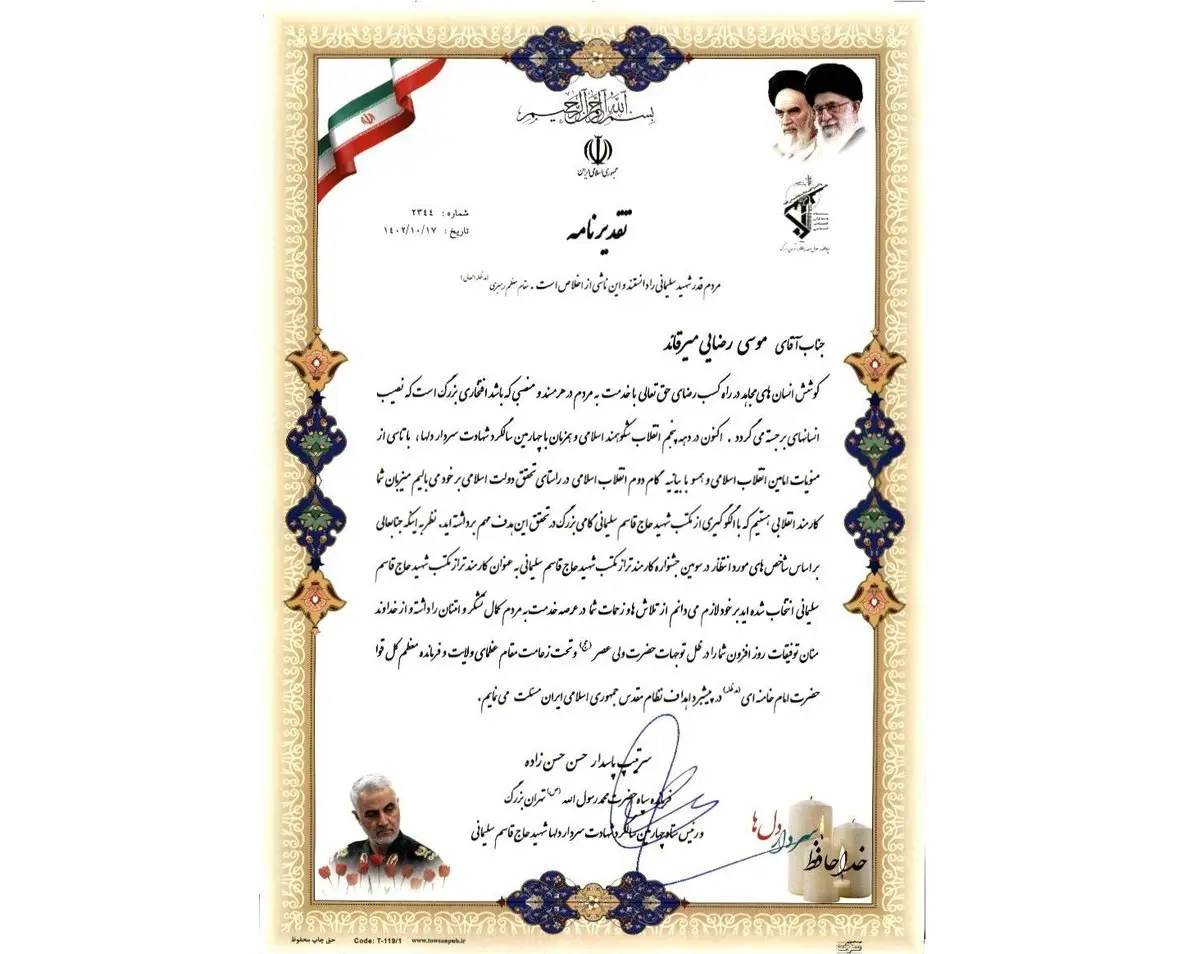 بسم الله الرحمن الرحیم
جمهوری اسلامی ایران
شماره : ۲۳۴۴
تاریخ : ۱۴۰۲/۱۰/۱۷
تقدیرنامه
مردم قدر شهید سلیمانی را دانستند و این ناشی از اخلاص است . مقام معظم رهبری (مدظله العالی)
جناب آقای موسی رضایی میرقائد
کوشش انسان های مجاهد در راه کسب رضای حق تعالی با خدمت به مردم در هر مسند و منصبی که باشد افتخاری بزرگ است که نصیب
انسانهای برجسته می گردد . اکنون در دهه پنجم انقلاب شکوهمند اسلامی و همزمان با چهارمین سالگرد شهادت سردار دلها، با تاسی از
منویات امامین انقلاب اسلامی و همسو با بیانیه گام دوم انقلاب اسلامی در راستای تحقق دولت اسلامی بر خود می بالیم میزبان شما
کارمند انقلابی هستیم که با الگوگیری از مکتب شهید حاج قاسم سلیمانی گامی بزرگ در تحقق این هدف مهم برداشته اید. نظر به اینکه جنابعالی
بر اساس شاخص های مورد انتظار در سومین جشنواره کارمند تراز مکتب شهید حاج قاسم سلیمانی به عنوان کارمند تراز مکتب شهید حاج قاسم
سلیمانی انتخاب شده اید بر خود لازم می دانم از تلاش ها و زحمات شما در عرصه خدمت به مردم کمال تشکر و امتنان را داشته و از خداوند
منان توفیقات روز افزون شما را در ظل توجهات حضرت ولی عصر (عج) و تحت زعامت مقام عظمای ولایت و فرمانده معظم کل قوا
حضرت امام خامنه ای (مدظله) در پیشبرد اهداف نظام مقدس جمهوری اسلامی ایران مسئلت می نمایم.
سرتیپ پاسدار حسن حسن زاده
فرمانده سپاه حضرت محمد رسول الله (ص) تهران بزرگ
و رئیس ستاد چهارمین سالگرد شهادت سردار دلها شهید حاج قاسم سلیمانی
خداحافظ سردار دل ها
حق چاپ محفوظ Code: T-119/1 www.towsanpub.ir